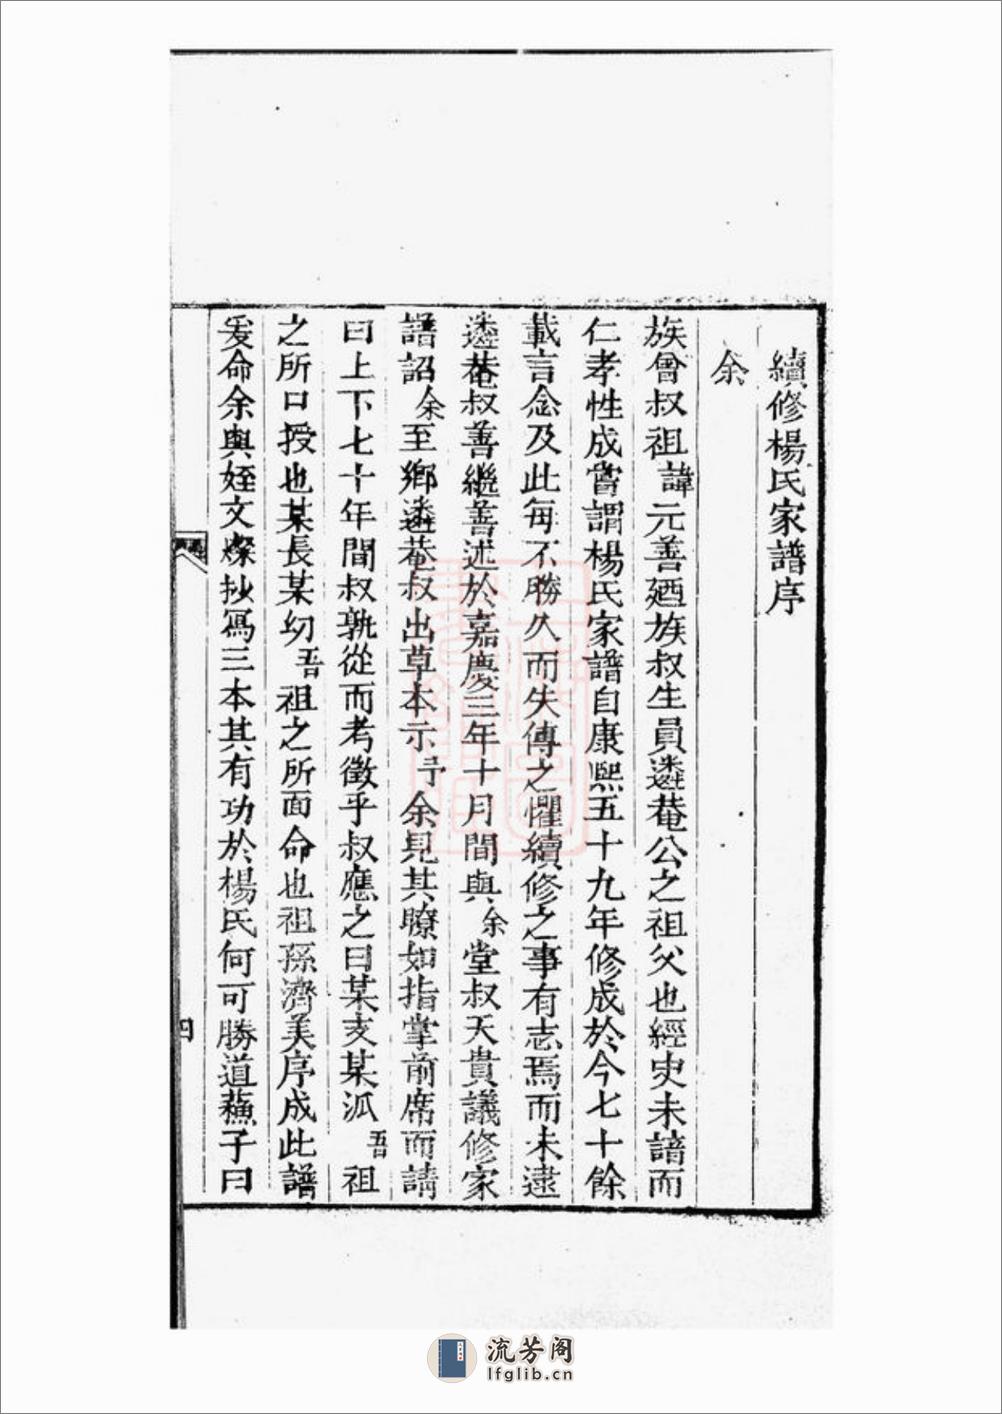 續修楊氏家譜序
余
族曾叔祖諱元善廼族叔生員遴菴公之祖父也經史未諳而
仁孝性成嘗謂楊氏家譜自康熙五十九年修成於今七十餘
載言念及此每不勝久而失傳之懼續修之事有志焉而未逮
遴菴叔善繼善述於嘉慶三年十月間與余堂叔天貴議修家
譜詔余至鄉遴菴叔出草本示于余見其瞭如指掌前席而請
曰上下七十年間叔孰從而考徵乎叔應之曰某支某泒吾祖
之所口授也某長某幼吾祖之所面命也祖孫濟美序成此譜
爰命余與姪文燦抄寫三本其有功於楊氏何可勝道蘓子曰
四
流芳阁
lfglib.cn